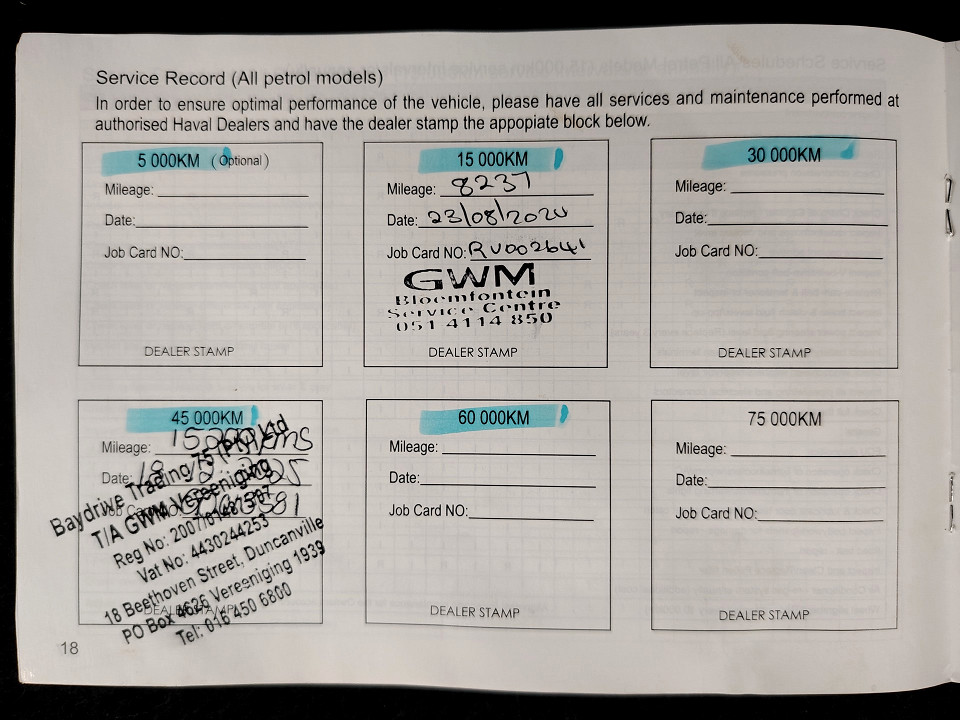 Service Record (All petrol models)
In order to ensure optimal performance of the vehicle, please have all services and maintenance performed at
authorised Haval Dealers and have the dealer stamp the appopiate block below.
5 000KM (Optional)
Mileage:
Date:
Job Card NO:
DEALER STAMP
15 000KM
Mileage: 8237
Date: 23/08/2024
Job Card NO: RV002641
GWM
Bloemfontein
Service Centre
051 4114 850
DEALER STAMP
30 000KM
Mileage:
Date:
Job Card NO:
DEALER STAMP
45 000KM
Mileage:
Date:
Baydrive Trading 75 (Pty) Ltd
T/A GWM Vereeniging
Reg No:
Vat No: 4430244253
18 Beethoven Street, Duncanville
PO Box 4626 Vereeniging 1939
Tel: 016 450 6800
DEALER STAMP
60 000KM
Mileage:
Date:
Job Card NO:
DEALER STAMP
75 000KM
Mileage:
Date:
Job Card NO:
DEALER STAMP
18